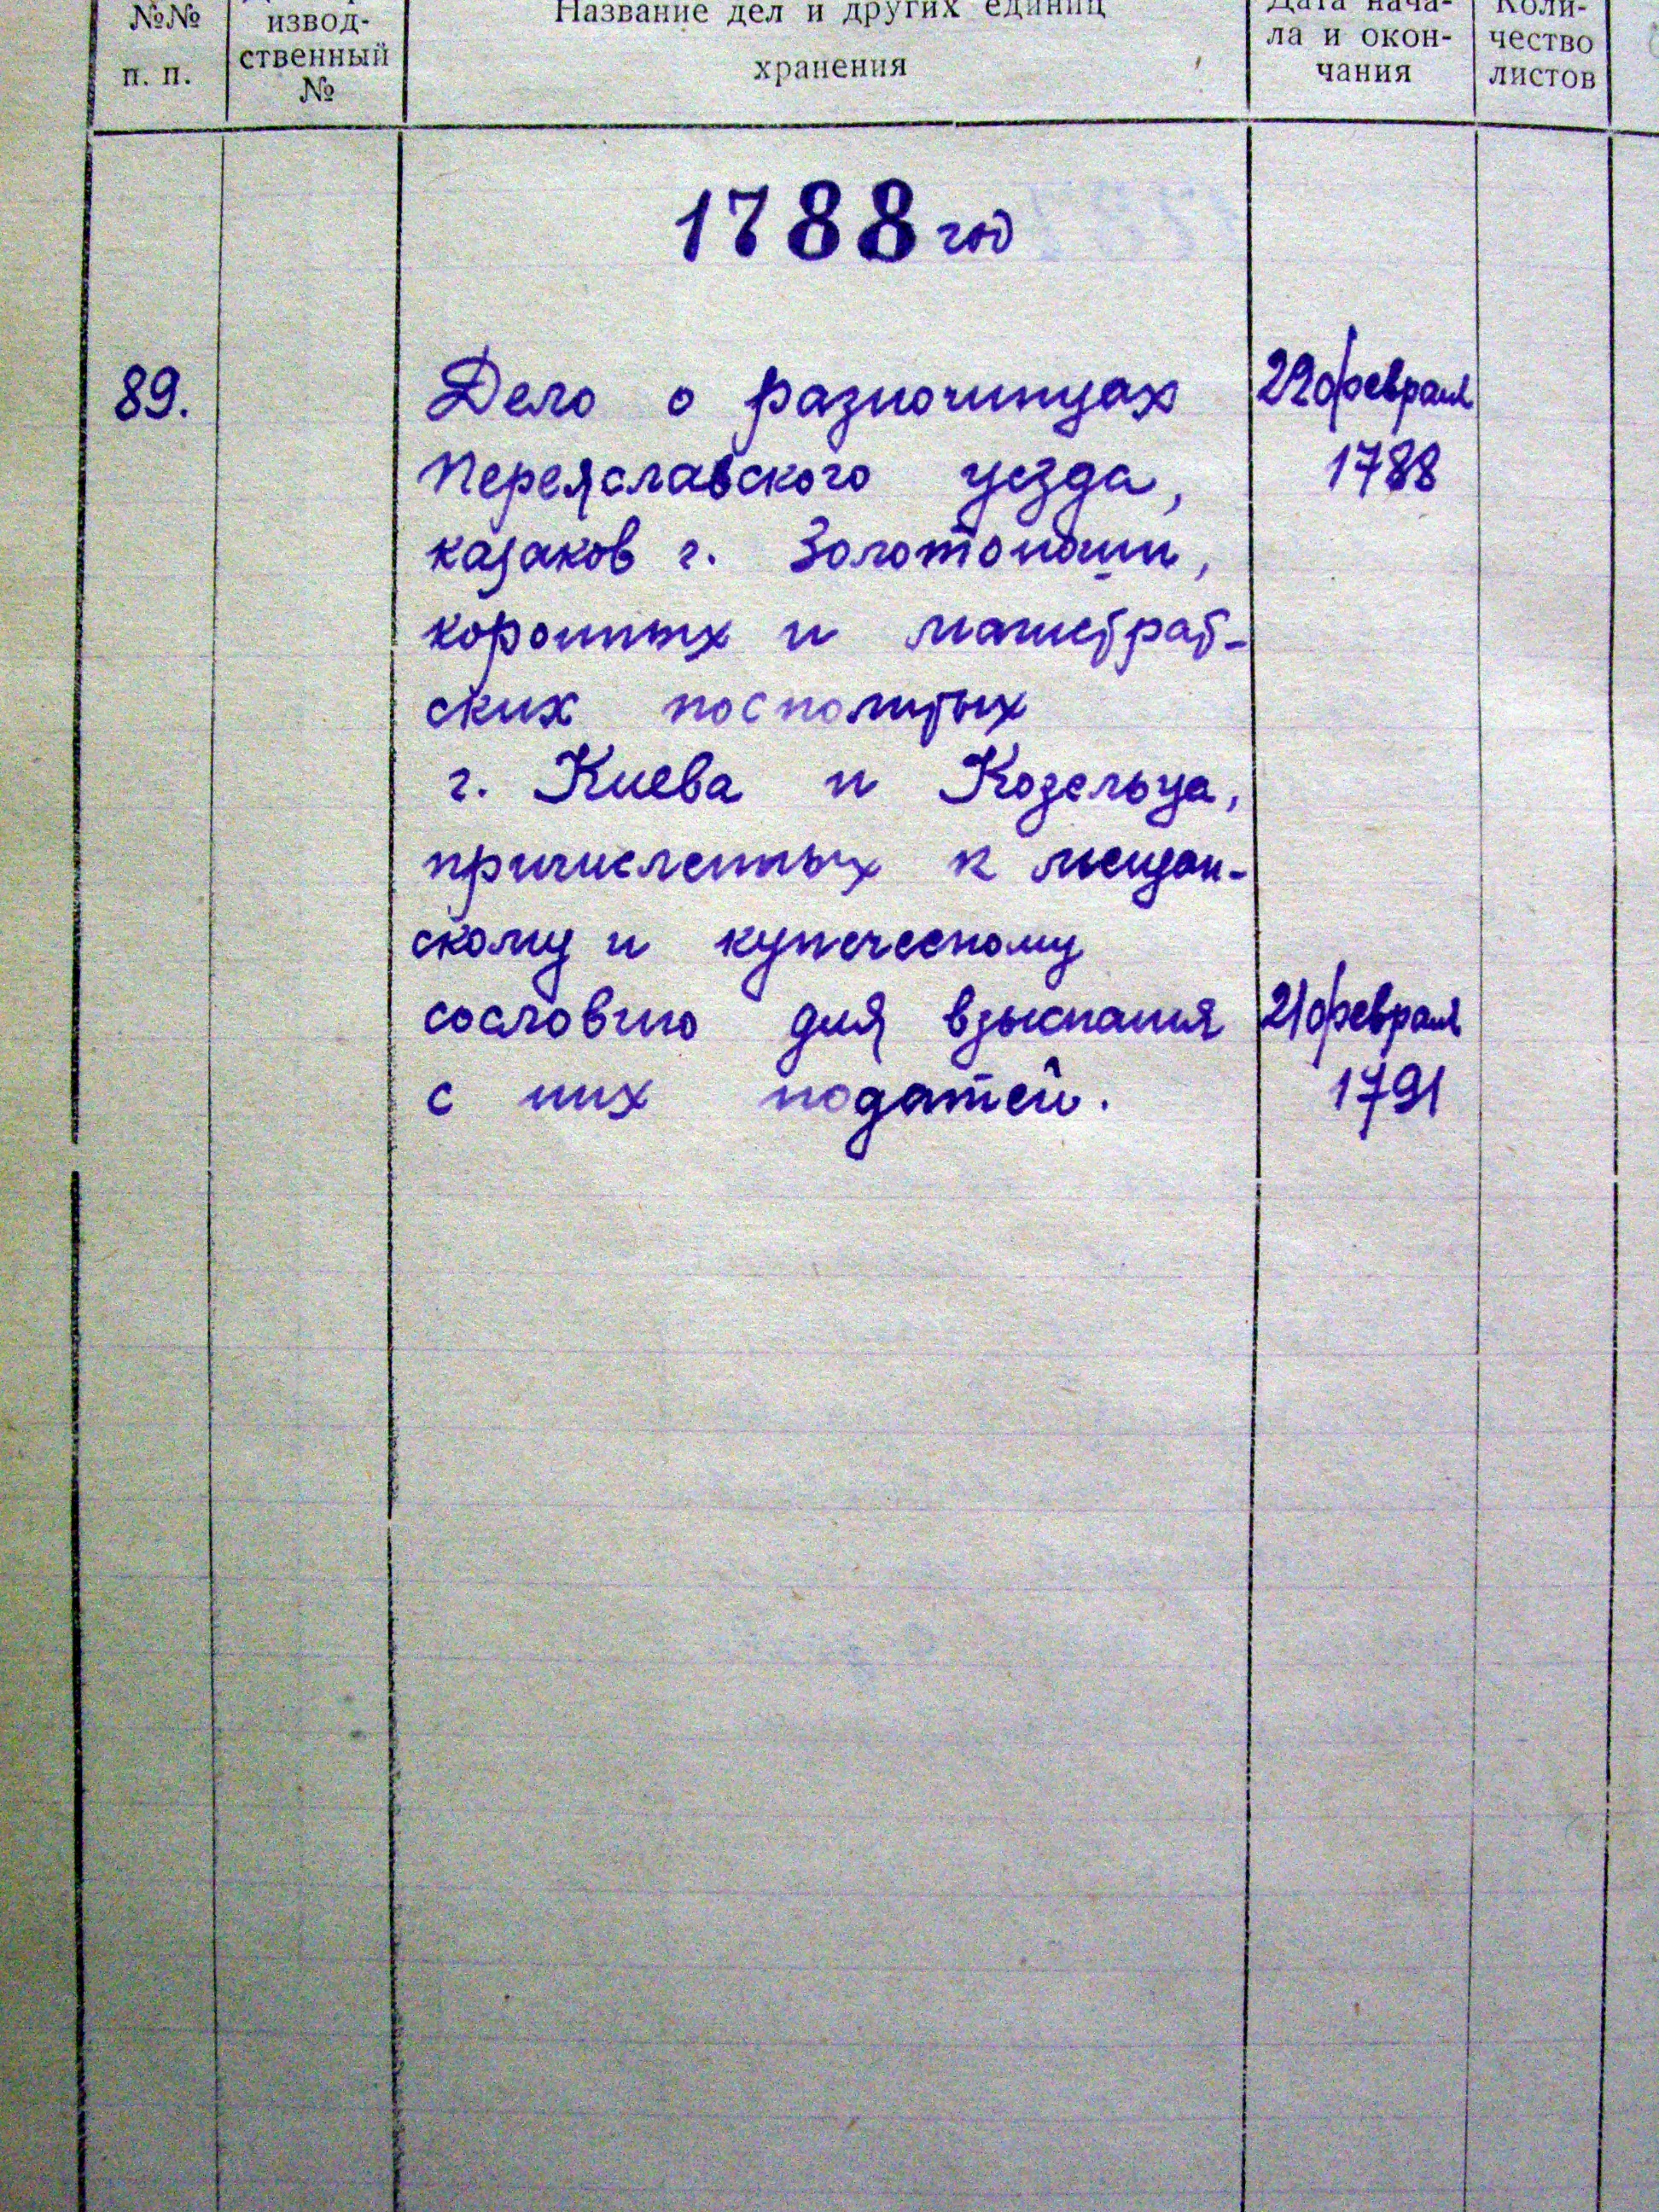 №№
п. п.
извод-
ственный
№
Название дел и других единиц
хранения
Дата нача-
ла и окон-
чания
Коли-
чество
листов
1788 год
89.
Дело о разночинцах
Переяславского уезда,
казаков г. Золотоноши,
коронных и магистрат-
ских посполитых
г. Киева и Козельца,
причисленных к мещан-
скому и купеческому
сословию для взыскания
с них податей.
22 февраля
1788
21 февраля
1791